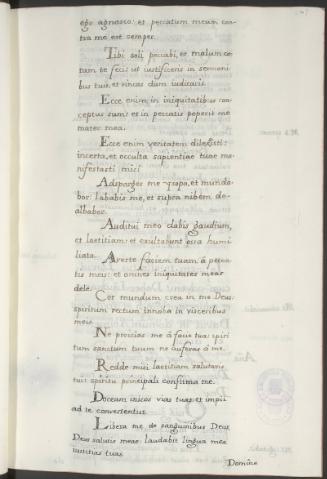 ego agnosco: et peccatum meum con
tra me est semper.
Tibi soli peccabi, et malum co
ram te feci ut iustificeris in sermoni
bus tuis et vincas cum iudicaris.
Ecce enim in iniquitatibus con
ceptus sum: et in peccatis peperit me
mater mea.
Ecce enim veritatem dilexisti:
incerta, et occulta sapientiae tuae ma
nifestasti mici
Adsparges me ysopo, et munda
bor: lababis me, et supra nibem de
albabor.
Auditui meo dabis gaudium,
et laetitiam: et exultabunt ossa humi
liata.
Averte faciem tuam à pecca
tis meis: et omnes iniquitates meas
dele.
Cor mundum crea in me Deus
spiritum rectum innoba in visceribus
meis.
Ne proicias me à facie tua: spiri
tum sanctum tuum ne auferas à me.
Redde mici laetitiam salutaris
tui: spiritu principali confirma me.
Doceam inicos vias tuas: et impii
ad te convertentur.
Libera me de sanguinibus Deus
Deus salutis meae: laudabit lingua mea
iustitias tuas.
Domine